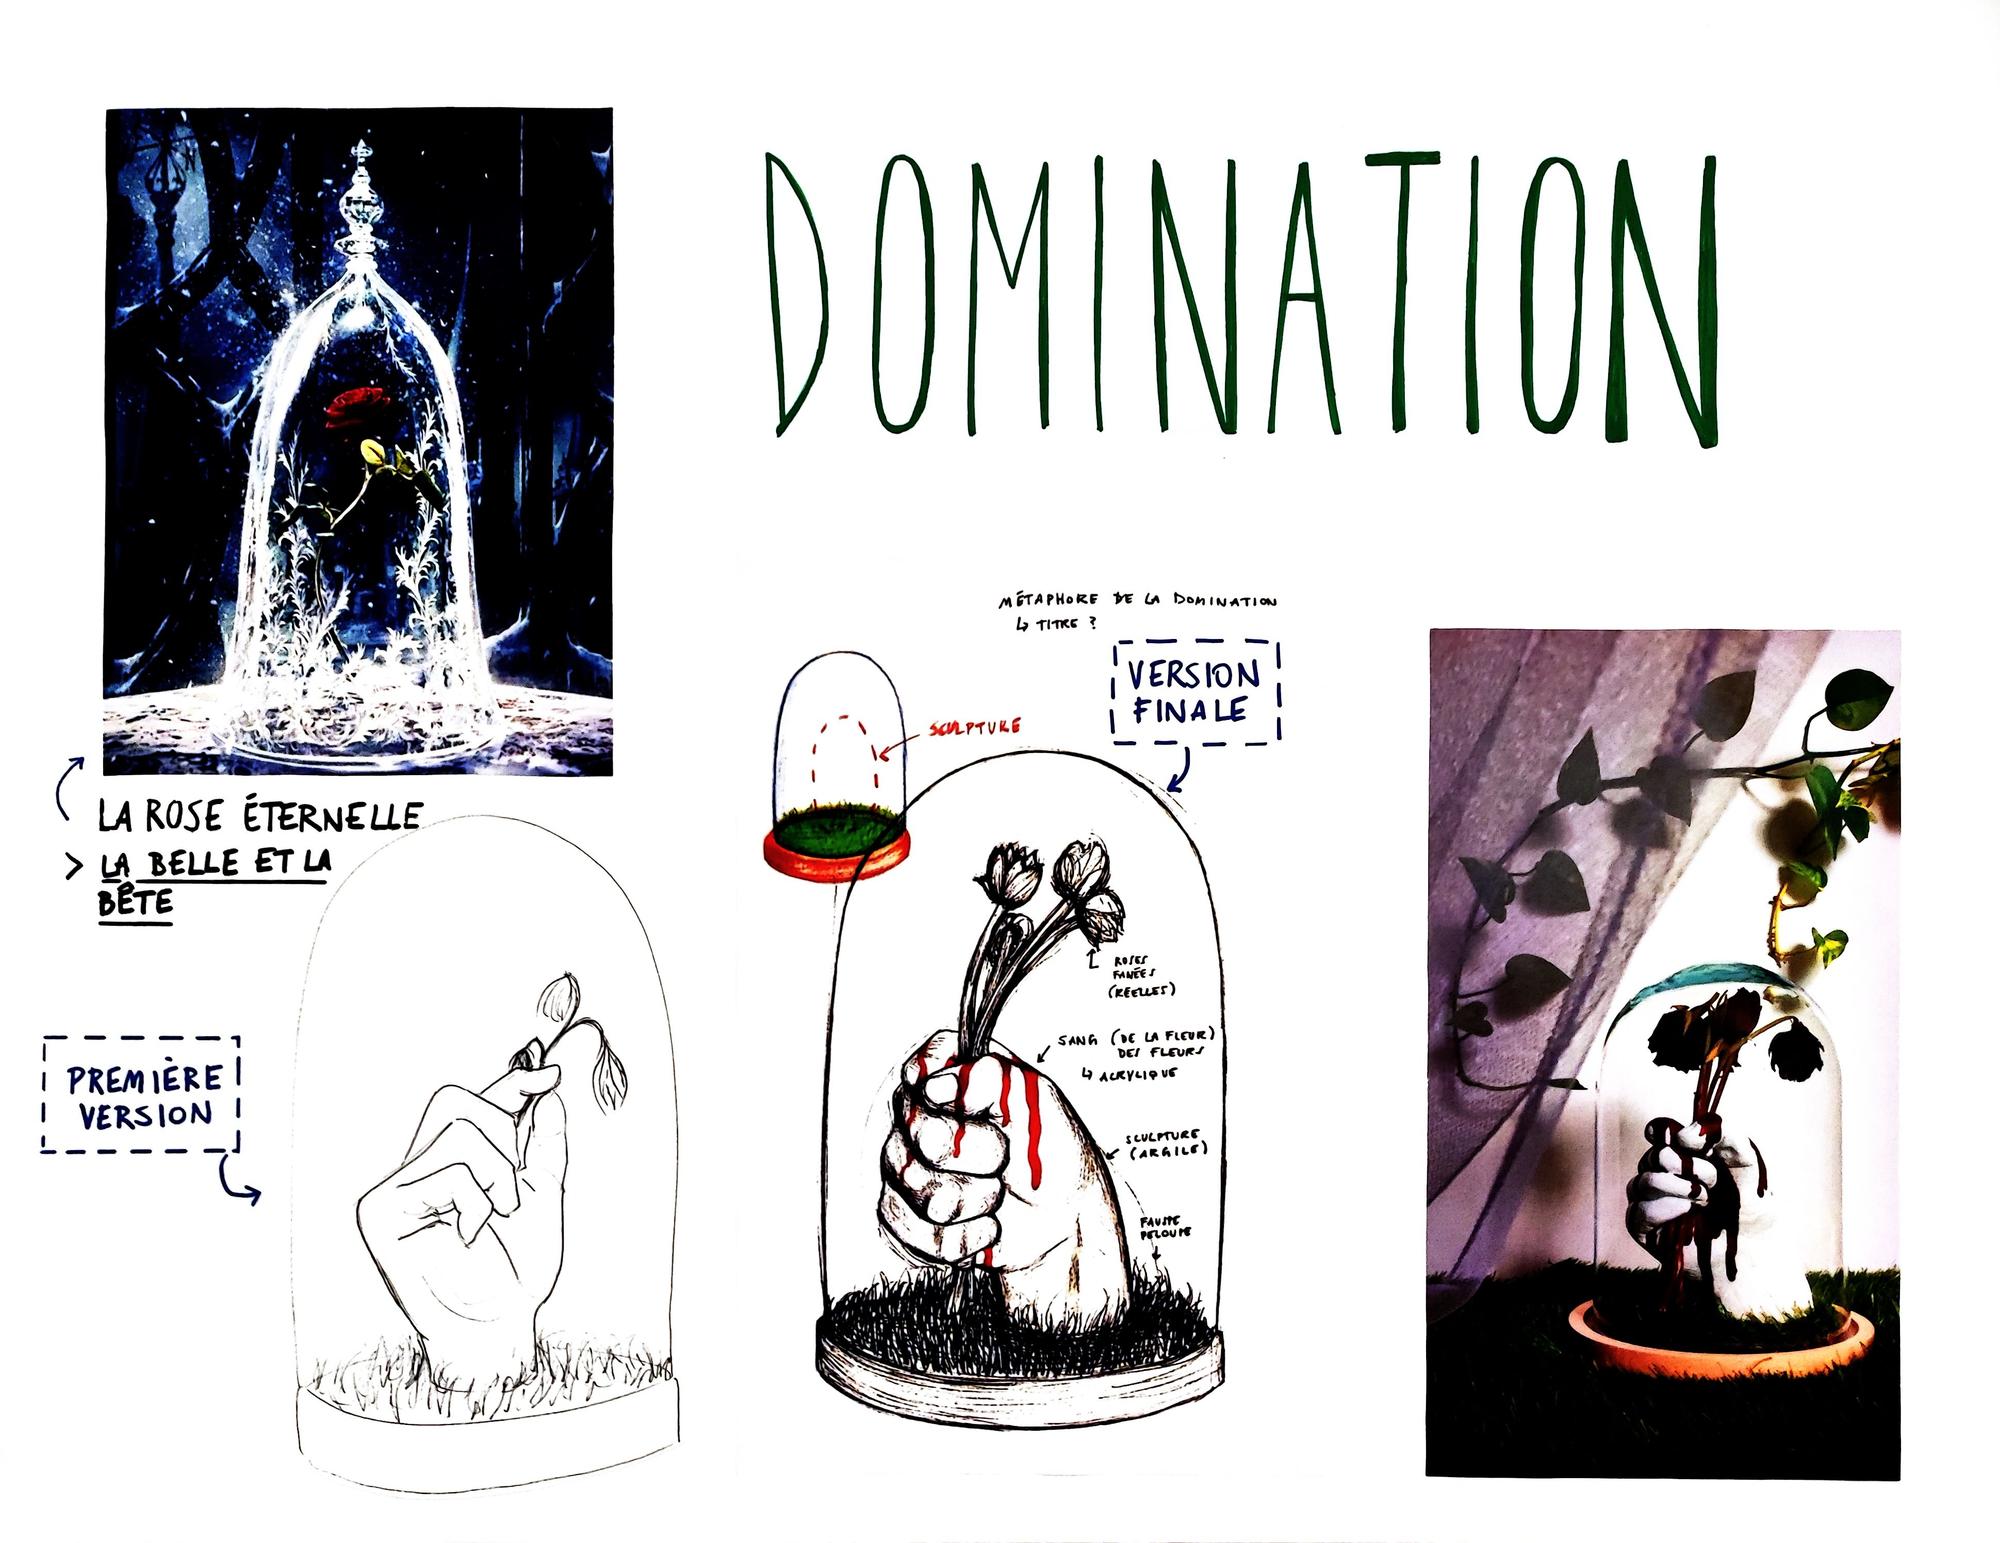 DOMINATION
LA ROSE ÉTERNELLE
> LA BELLE ET LA
BÊTE
PREMIÈRE
VERSION
MÉTAPHORE DE LA DOMINATION
↳ TITRE ?
VERSION
FINALE
SCULPTURE
ROSES
FANÉES
(RÉELLES)
SANG (DE LA FLEUR)
DES FLEURS
↳ ACRYLIQUE
SCULPTURE
(ARGILE)
FAUSSE
PELOUSE